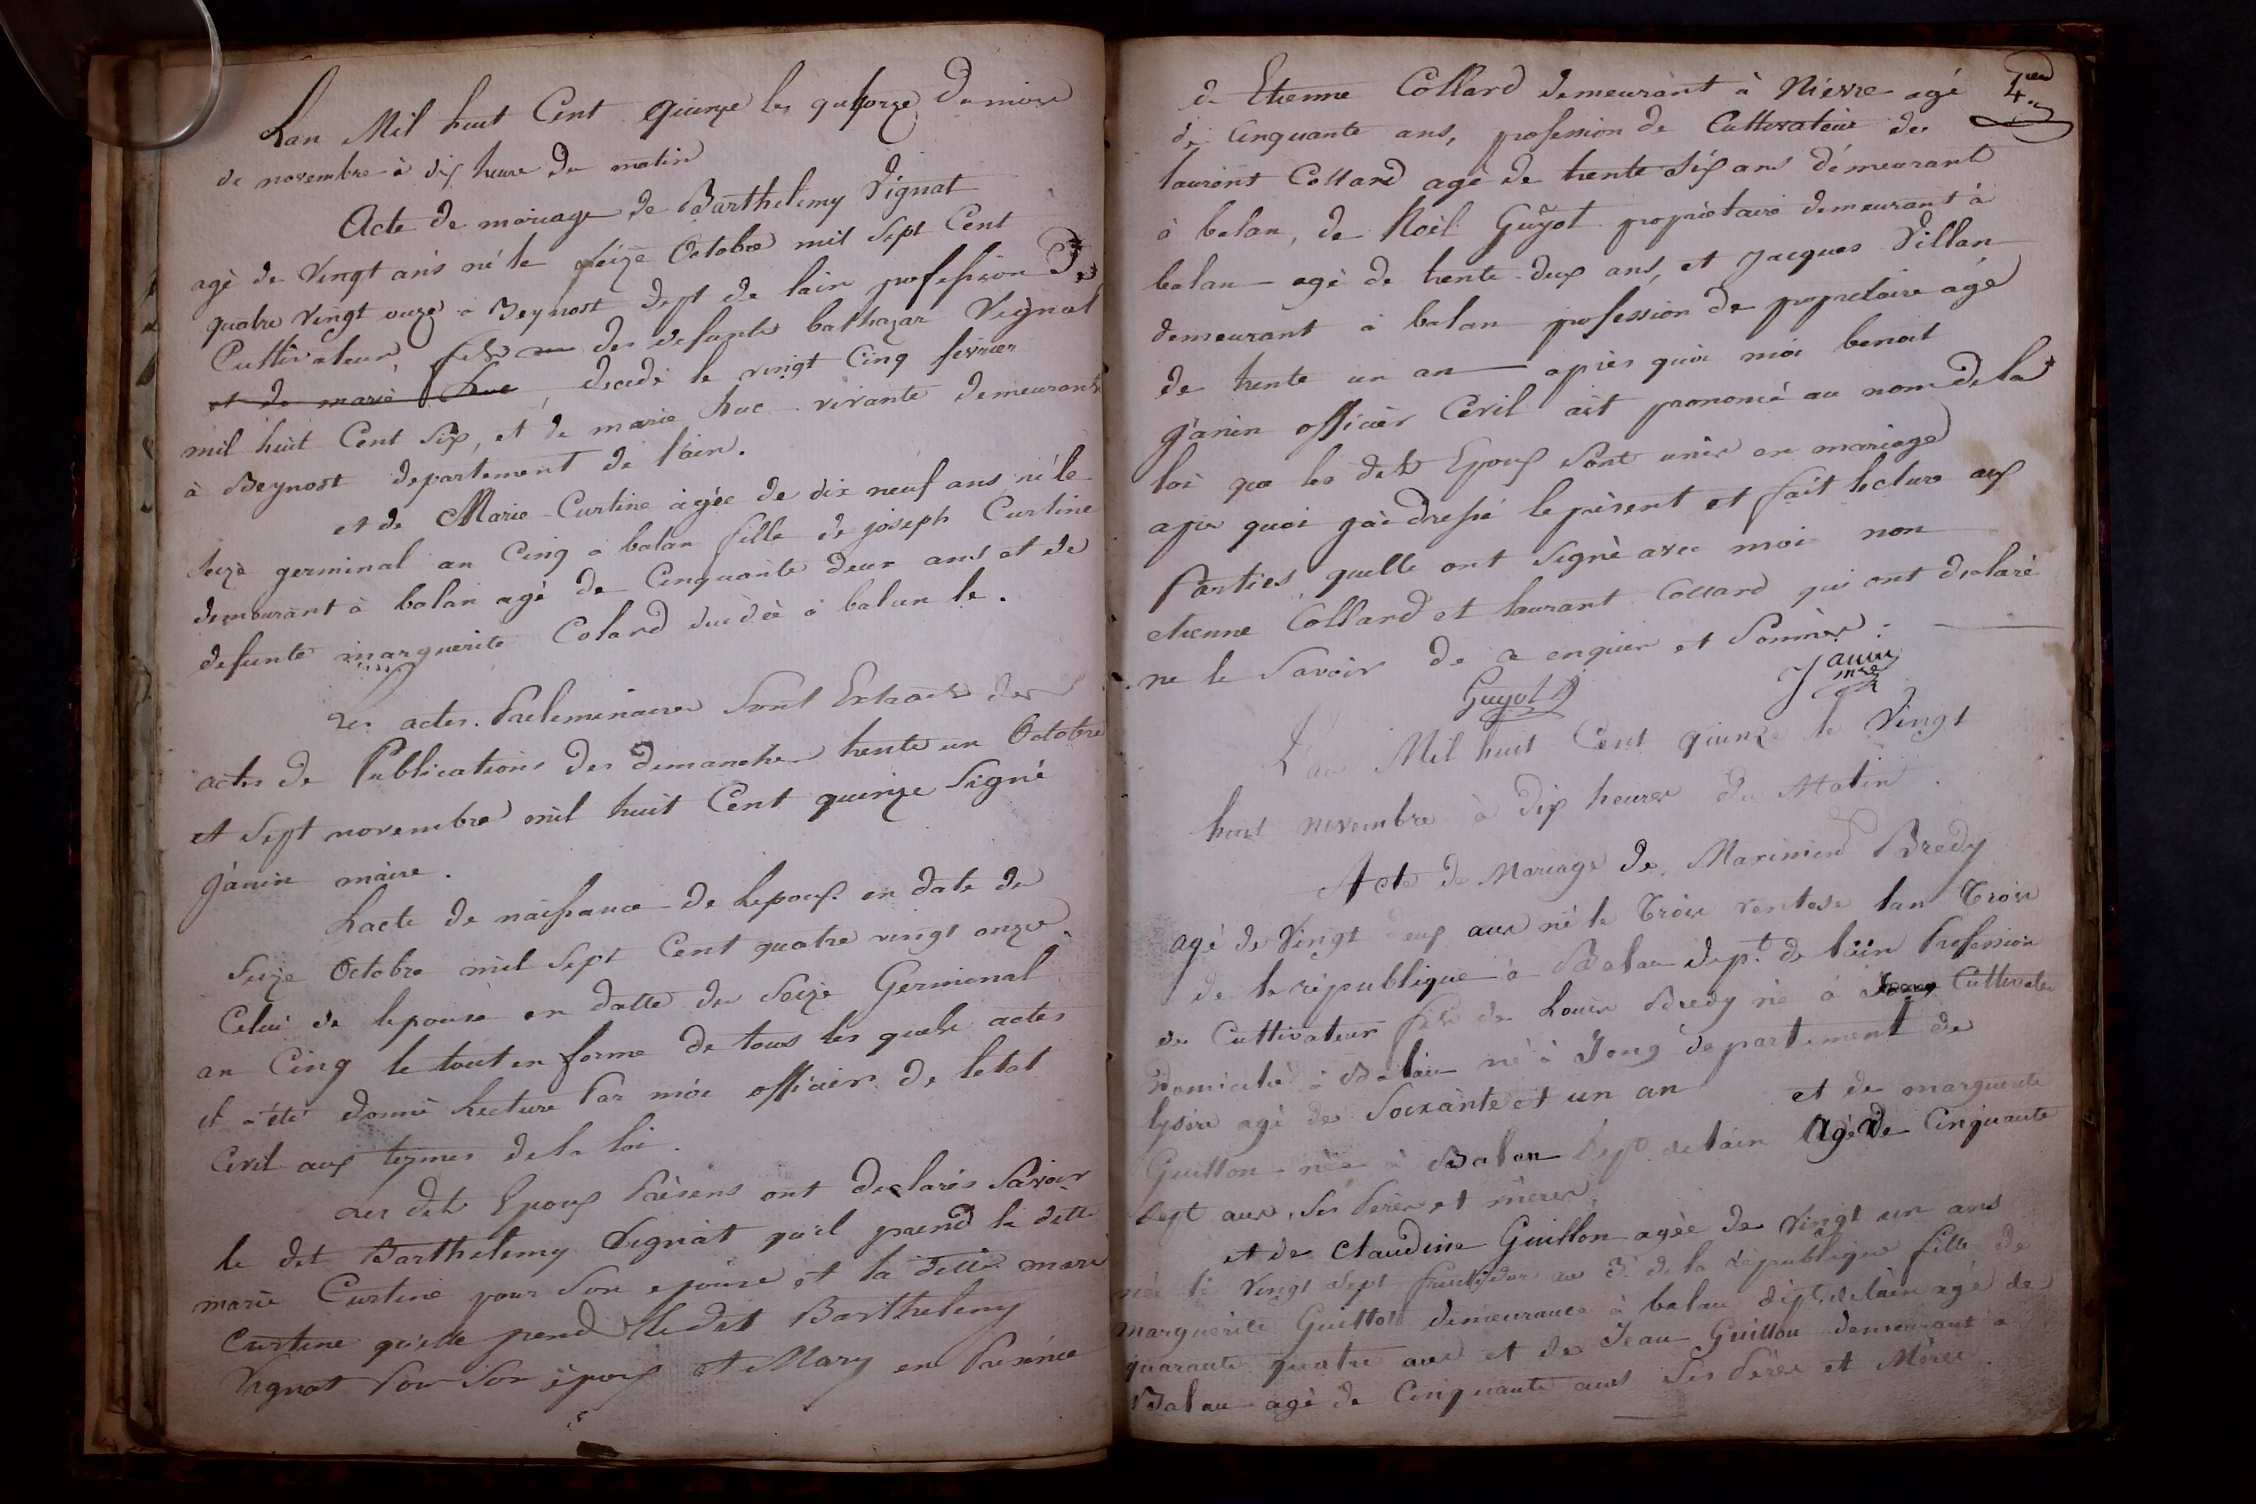 Lan Mil huit Cent quinze les quatorze du mois
de novembre à dix heure du matin
Acte de mariage de Barthelemy Vignat
agé de Vingt ans né le seize Octobre mil sept Cent
quatre vingt onze a Beynost dept de lain profession De
Cultivateur, fils des defunts bathazar Vignat
et de marie huc, decedé le vingt Cinq fevrier
mil huit Cent Six, et de marie huc vivante demeurant
à Beynost departement de l'ain.
et de Marie Curtine agée de dix neuf ans né le
seize germinal an Cinq a balan fille de joseph Curtine
demeurant à balan agé de Cinquante deux ans et de
defunte marguerite Colard décédée à balan le.
Les actes Preleminaires Sont Extraits des
actes de Publications des dimanches trente un Octobre
et Sept novembre mil huit Cent quinze Signé
janin maire.
Lacte de naissance de lepoux en date du
Seize Octobre mil Sept Cent quatre vingt onze.
Celui de lepouse en datte du Seize Germinal
an Cinq le tout en forme de tous les quels actes
il a été donné lecture Par moi officier de letat
Civil aux termes de la loi.
Les dits Epoux Présens ont declarés Savoir
le dit Barthelemy Vignat quil prend la ditte
marie Curtine pour Son epouse et la ditte marie
Curtine quelle prend le dit Barthelemy
Vignat Pour Son époux et Mary en Présence
4
de Etienne Collard demeurant à Nievre agé
de Cinquante ans, profession de Cultivateur de
laurent Collard agé de trente Six ans demeurant
à balan, de Noël Guÿot propriétaire demeurant à
balan agé de trente deux ans, et jacques Villan
demeurant à balan profession de propretaire agé
de trente un an après quoi moi benoit
janin officier Civil ait prononcé au nom de la
loi que les dits Epoux Sont unis en mariage
apres quoi jai dressé le présent et fait lecture aux
Parties quelle ont Signé avec moi non
etienne Collard et laurant Collard qui ont declaré
ne le Savoir de a enquier et Sommer.
Guyot
Janin
mre
Lan Mil huit Cent quinze le Vingt
huit novembre à dix heures du Matin.
Acte de Mariage de Marinien Bredy
agé de Vingt deux ans né le Trois ventose lan Trois
de la république à Balan dept. de lain Profession
de Cultivateur fils de Louis Bredy né à Cultivateur
Domicilié à Balan né à Jong département de
lysere agé de Soixante et un an et de marguerite
Guillon née à Balan Dept. de lain agé de Cinquante
Sept ans, Ses Peres et meres.
et de Claudine Guillon agée de Vingt un ans
née le Vingt Sept fructidor an 3e de la république fille de
Marguerite Guillon demeurance à balan dept. de lain agé de
quarante quatre ans et de Jean Guillon demeurant à
Balan agé de Cinquante ans Ses Pères et Mères.